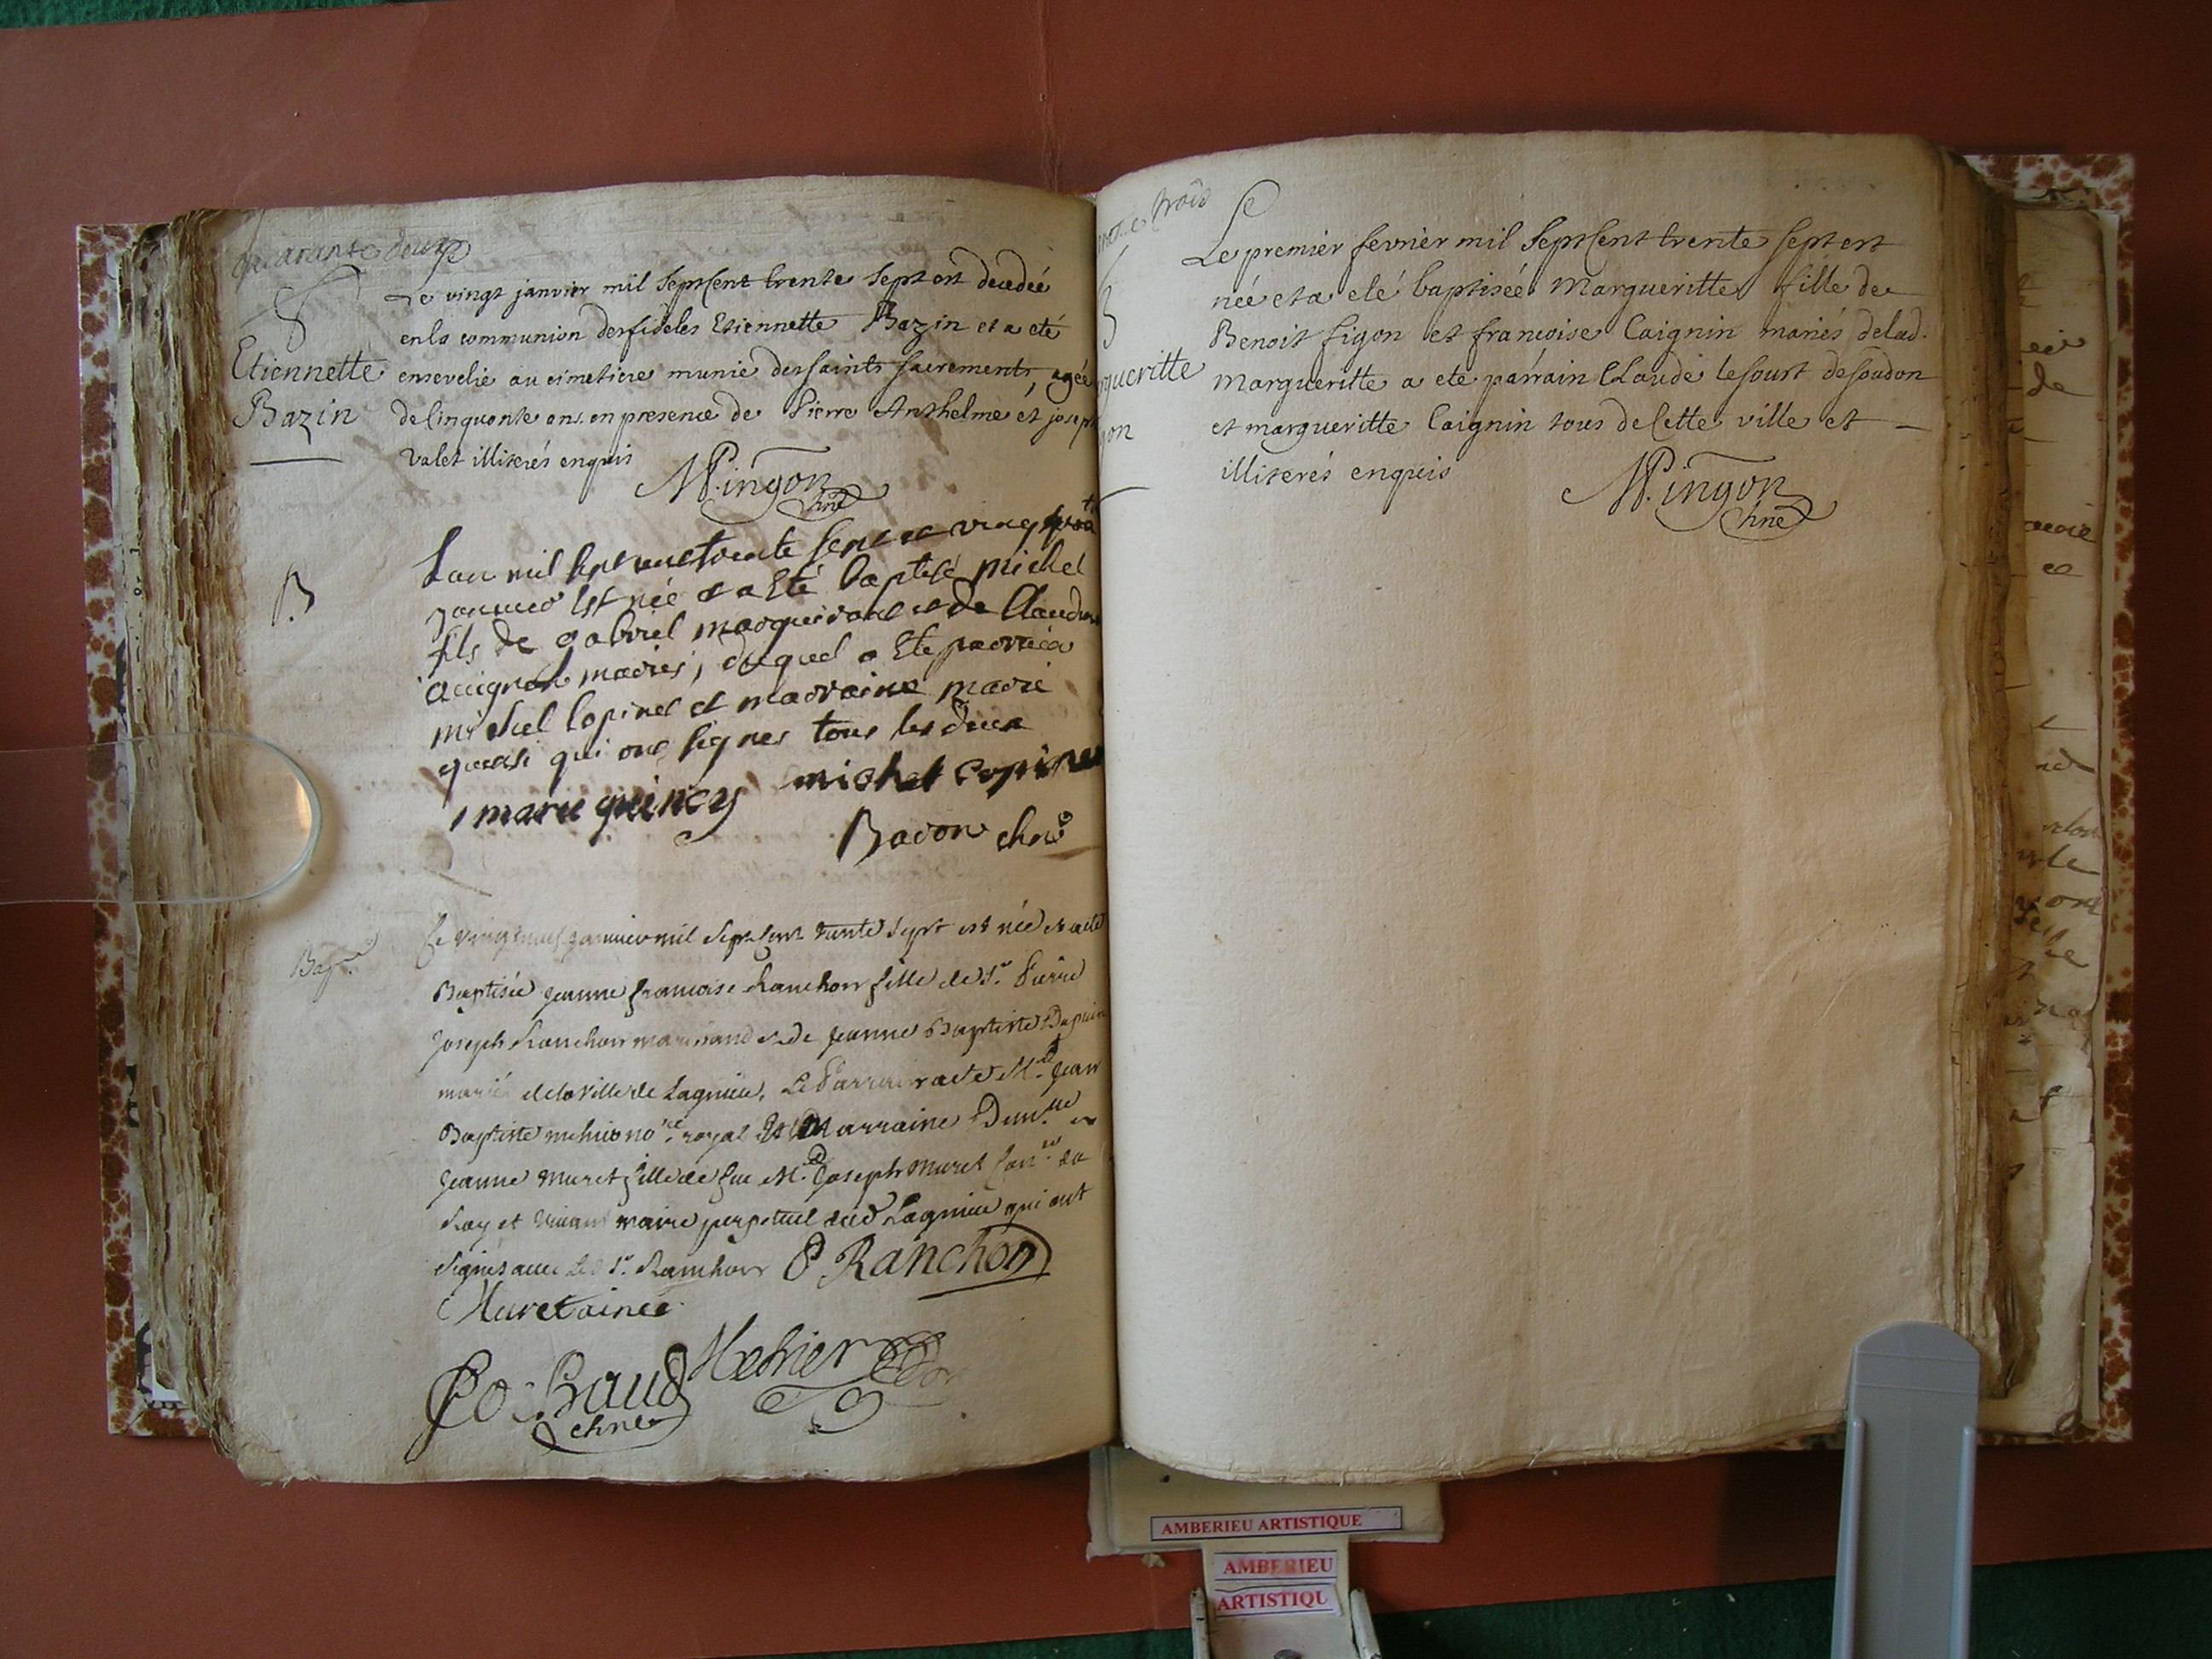 quarante deux
Le vingt janvier mil sept Cent trente sept est decedée
en la communion des fideles Etiennette Bazin et a eté
Etiennette
Bazin
ensevelie au cimetiere munie des saints sacrements, agée
de Cinquante ans. en presence de Pierre Anthelme et joseph
Valet illiterés enquis
M. Pingon
chne
B
Lan mil sept cent trente sept et vingt
janvier est née et a Eté baptisé michel
fils de gabriel et de Claudine
mariés, duquel a Ete parrein
michel Copinet et marraine marie
qui ont signes tous les deux
marie quincy michel Copinet
Bacon chne
Bap.
Le vingt neuf janvier mil sept Cent trente sept est née et a eté
Baptisée jeanne françoise Ranchon fille de Sr. Pierre
joseph Ranchon marchand et de jeanne Baptiste Dupuin
mariés de la Ville de Lagnieu, Le Parrain a eté Mre. jean
Baptiste mehier nore. royal Et Marraine Demlle.
jeanne muret fille de feu Mre. joseph muret Conr. du
Roy et Vivant maire perpetuel dud Lagnieu qui ont
signés avec Led Sr. Ranchon P Ranchon
Muret ainée
Mehier
chne
trois
Le premier fevrier mil sept Cent trente sept est
née et a eté baptisée Margueritte fille de
Benoit figon et francoise Caignin mariés de lad.
gueritte
gon
Margueritte a ete parrain Claude lesourt de soudon
et margueritte Caignin tous de Cette ville et
illiterés enquis
M. Pingon
chne
AMBERIEU ARTISTIQUE
AMBERIEU
ARTISTIQU